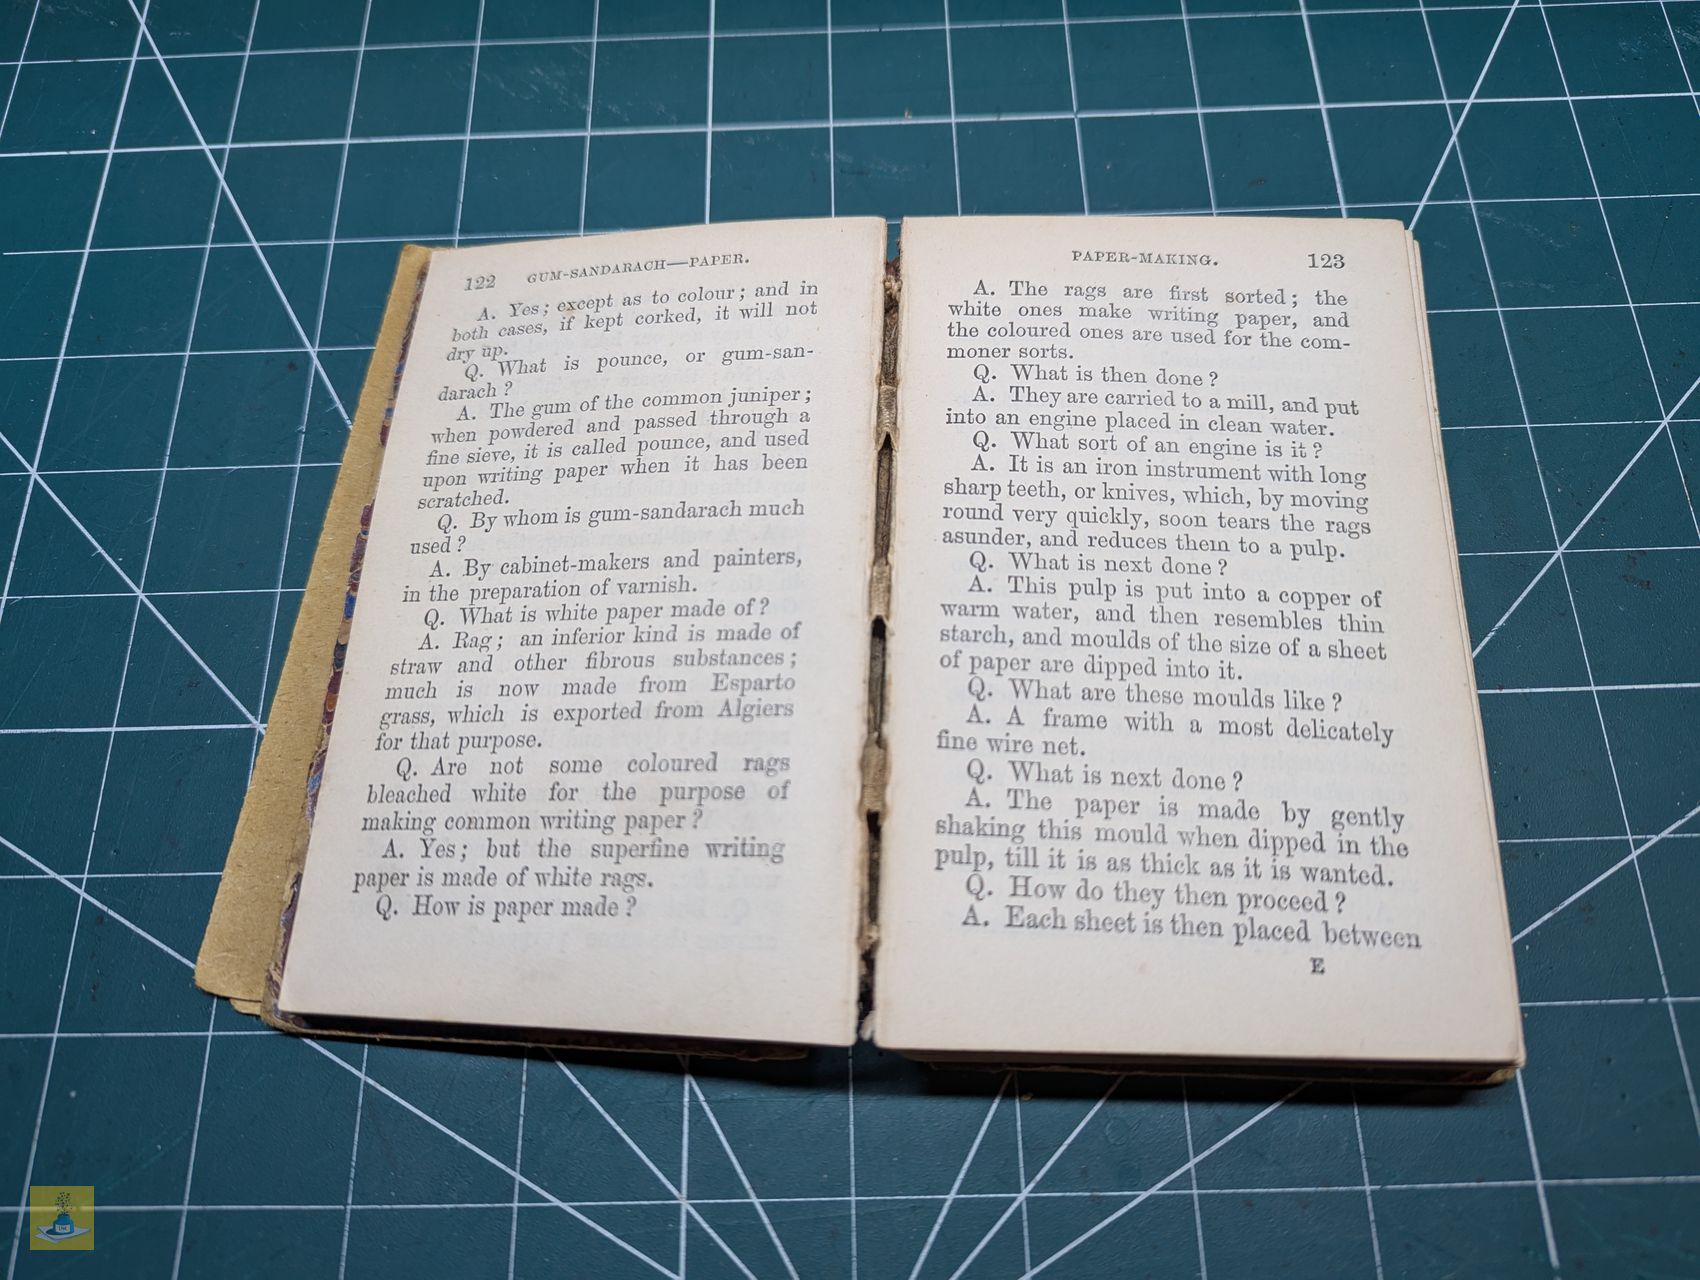 122 GUM-SANDARACH—PAPER.
A. Yes; except as to colour; and in
both cases, if kept corked, it will not
dry up.
Q. What is pounce, or gum-san-
darach?
A. The gum of the common juniper;
when powdered and passed through a
fine sieve, it is called pounce, and used
upon writing paper when it has been
scratched.
Q. By whom is gum-sandarach much
used?
A. By cabinet-makers and painters,
in the preparation of varnish.
Q. What is white paper made of?
A. Rag; an inferior kind is made of
straw and other fibrous substances;
much is now made from Esparto
grass, which is exported from Algiers
for that purpose.
Q. Are not some coloured rags
bleached white for the purpose of
making common writing paper?
A. Yes; but the superfine writing
paper is made of white rags.
Q. How is paper made?
PAPER-MAKING. 123
A. The rags are first sorted; the
white ones make writing paper, and
the coloured ones are used for the com-
moner sorts.
Q. What is then done?
A. They are carried to a mill, and put
into an engine placed in clean water.
Q. What sort of an engine is it?
A. It is an iron instrument with long
sharp teeth, or knives, which, by moving
round very quickly, soon tears the rags
asunder, and reduces them to a pulp.
Q. What is next done?
A. This pulp is put into a copper of
warm water, and then resembles thin
starch, and moulds of the size of a sheet
of paper are dipped into it.
Q. What are these moulds like?
A. A frame with a most delicately
fine wire net.
Q. What is next done?
A. The paper is made by gently
shaking this mould when dipped in the
pulp, till it is as thick as it is wanted.
Q. How do they then proceed?
A. Each sheet is then placed between
E